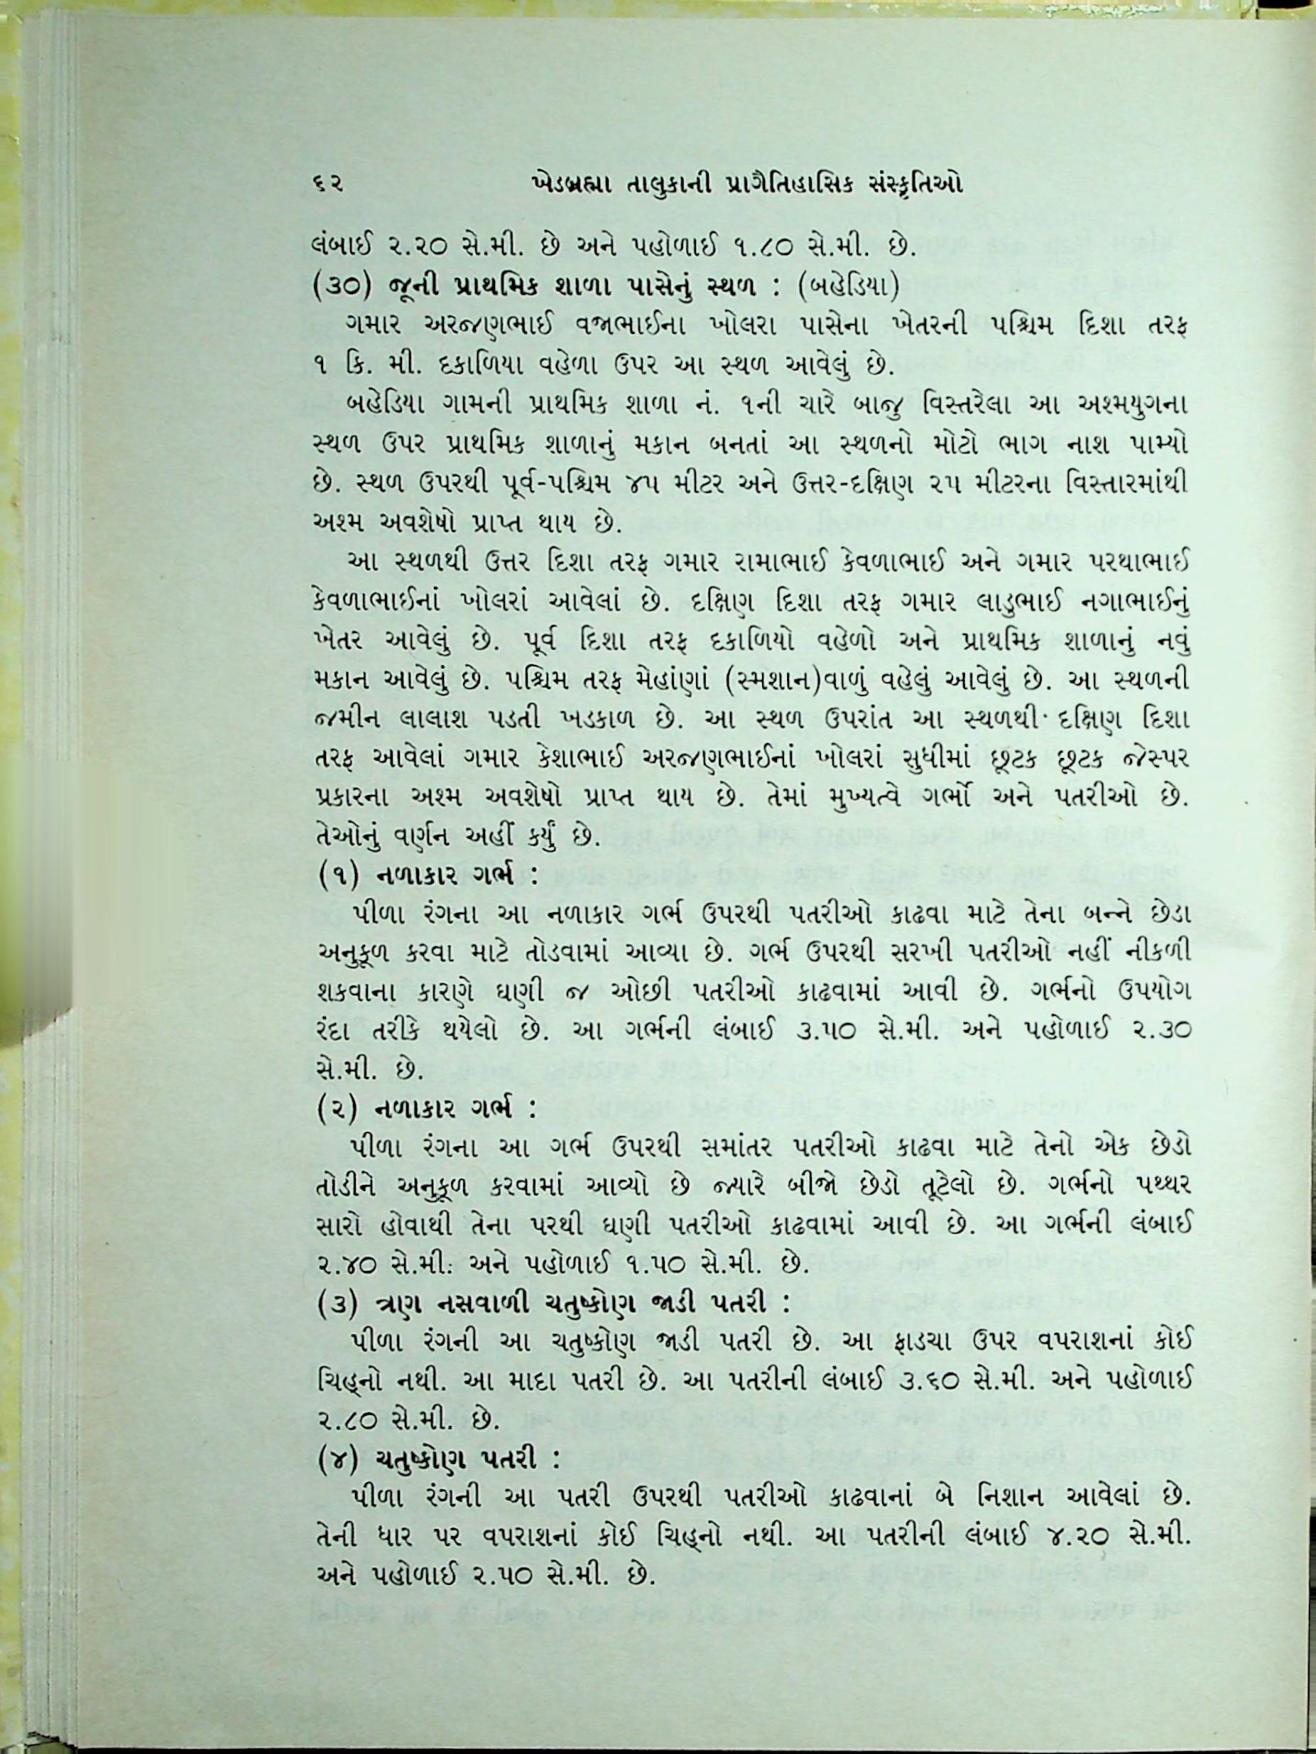 ૬૨ ખેડબ્રહ્મા તાલુકાની પ્રાગૈતિહાસિક સંસ્કૃતિઓ
લંબાઈ ૨.૨૦ સે.મી. છે અને પહોળાઈ ૧.૮૦ સે.મી. છે.
(૩૦) જૂની પ્રાથમિક શાળા પાસેનું સ્થળ : (બહેડિયા)
ગમાર અરજણભાઈ વજાભાઈના ખોલરા પાસેના ખેતરની પશ્ચિમ દિશા તરફ
૧ કિ. મી. દકાળિયા વહેળા ઉપર આ સ્થળ આવેલું છે.
બહેડિયા ગામની પ્રાથમિક શાળા નં. ૧ની ચારે બાજુ વિસ્તરેલા આ અશ્મયુગના
સ્થળ ઉપર પ્રાથમિક શાળાનું મકાન બનતાં આ સ્થળનો મોટો ભાગ નાશ પામ્યો
છે. સ્થળ ઉપરથી પૂર્વ-પશ્ચિમ ૪૫ મીટર અને ઉત્તર-દક્ષિણ ૨૫ મીટરના વિસ્તારમાંથી
અશ્મ અવશેષો પ્રાપ્ત થાય છે.
આ સ્થળથી ઉત્તર દિશા તરફ ગમાર રામાભાઈ કેવળાભાઈ અને ગમાર પરથાભાઈ
કેવળાભાઈનાં ખોલરાં આવેલાં છે. દક્ષિણ દિશા તરફ ગમાર લાડુભાઈ નગાભાઈનું
ખેતર આવેલું છે. પૂર્વ દિશા તરફ દકાળિયો વહેળો અને પ્રાથમિક શાળાનું નવું
મકાન આવેલું છે. પશ્ચિમ તરફ મેહાંણાં (સ્મશાન)વાળું વહેલું આવેલું છે. આ સ્થળની
જમીન લાલાશ પડતી ખડકાળ છે. આ સ્થળ ઉપરાંત આ સ્થળથી દક્ષિણ દિશા
તરફ આવેલાં ગમાર કેશાભાઈ અરજણભાઈનાં ખોલરાં સુધીમાં છૂટક છૂટક જેસ્પર
પ્રકારના અશ્મ અવશેષો પ્રાપ્ત થાય છે. તેમાં મુખ્યત્વે ગર્ભો અને પતરીઓ છે.
તેઓનું વર્ણન અહીં કર્યું છે.
(૧) નળાકાર ગર્ભ :
પીળા રંગના આ નળાકાર ગર્ભ ઉપરથી પતરીઓ કાઢવા માટે તેના બન્ને છેડા
અનુકૂળ કરવા માટે તોડવામાં આવ્યા છે. ગર્ભ ઉપરથી સરખી પતરીઓ નહીં નીકળી
શકવાના કારણે ઘણી જ ઓછી પતરીઓ કાઢવામાં આવી છે. ગર્ભનો ઉપયોગ
રંદા તરીકે થયેલો છે. આ ગર્ભની લંબાઈ ૩.૫૦ સે.મી. અને પહોળાઈ ૨.૩૦
સે.મી. છે.
(૨) નળાકાર ગર્ભ :
પીળા રંગના આ ગર્ભ ઉપરથી સમાંતર પતરીઓ કાઢવા માટે તેનો એક છેડો
તોડીને અનુકૂળ કરવામાં આવ્યો છે જ્યારે બીજો છેડો તૂટેલો છે. ગર્ભનો પથ્થર
સારો હોવાથી તેના પરથી ઘણી પતરીઓ કાઢવામાં આવી છે. આ ગર્ભની લંબાઈ
૨.૪૦ સે.મી. અને પહોળાઈ ૧.૫૦ સે.મી. છે.
(૩) ત્રણ નસવાળી ચતુષ્કોણ જાડી પતરી :
પીળા રંગની આ ચતુષ્કોણ જાડી પતરી છે. આ ફાડચા ઉપર વપરાશનાં કોઈ
ચિહ્નો નથી. આ માદા પતરી છે. આ પતરીની લંબાઈ ૩.૬૦ સે.મી. અને પહોળાઈ
૨.૮૦ સે.મી. છે.
(૪) ચતુષ્કોણ પતરી :
પીળા રંગની આ પતરી ઉપરથી પતરીઓ કાઢવાનાં બે નિશાન આવેલાં છે.
તેની ધાર પર વપરાશનાં કોઈ ચિહ્નો નથી. આ પતરીની લંબાઈ ૪.૨૦ સે.મી.
અને પહોળાઈ ૨.૫૦ સે.મી. છે.